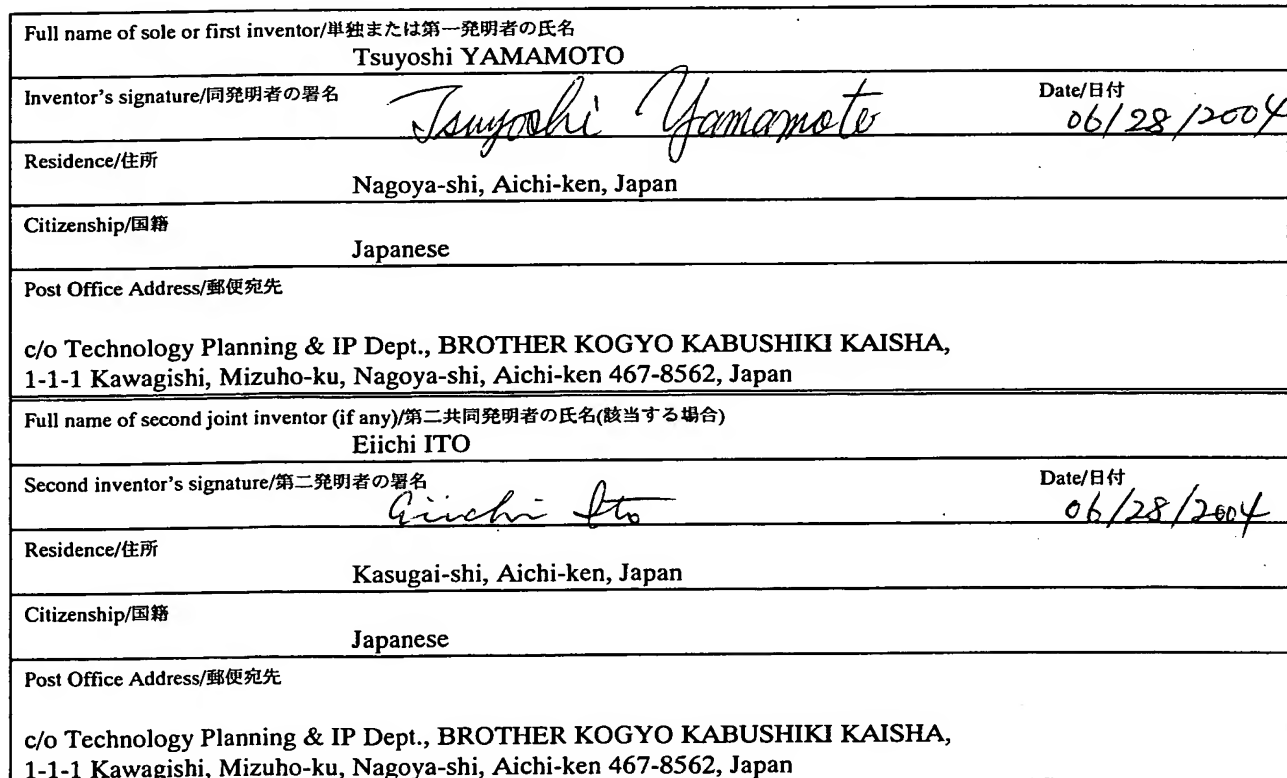 Full name of sole or first inventor/単独または第一発明者の氏名
Tsuyoshi YAMAMOTO
Inventor's signature/同発明者の署名 Tsuyoshi Yamamoto Date/日付
06/28/2004
Residence/住所
Nagoya-shi, Aichi-ken, Japan
Citizenship/国籍
Japanese
Post Office Address/郵便宛先
c/o Technology Planning & IP Dept., BROTHER KOGYO KABUSHIKI KAISHA,
1-1-1 Kawagishi, Mizuho-ku, Nagoya-shi, Aichi-ken 467-8562, Japan
Full name of second joint inventor (if any)/第二共同発明者の氏名(該当する場合)
Eiichi ITO
Second inventor's signature/第二発明者の署名 Eiichi Ito Date/日付
06/28/2004
Residence/住所
Kasugai-shi, Aichi-ken, Japan
Citizenship/国籍
Japanese
Post Office Address/郵便宛先
c/o Technology Planning & IP Dept., BROTHER KOGYO KABUSHIKI KAISHA,
1-1-1 Kawagishi, Mizuho-ku, Nagoya-shi, Aichi-ken 467-8562, Japan